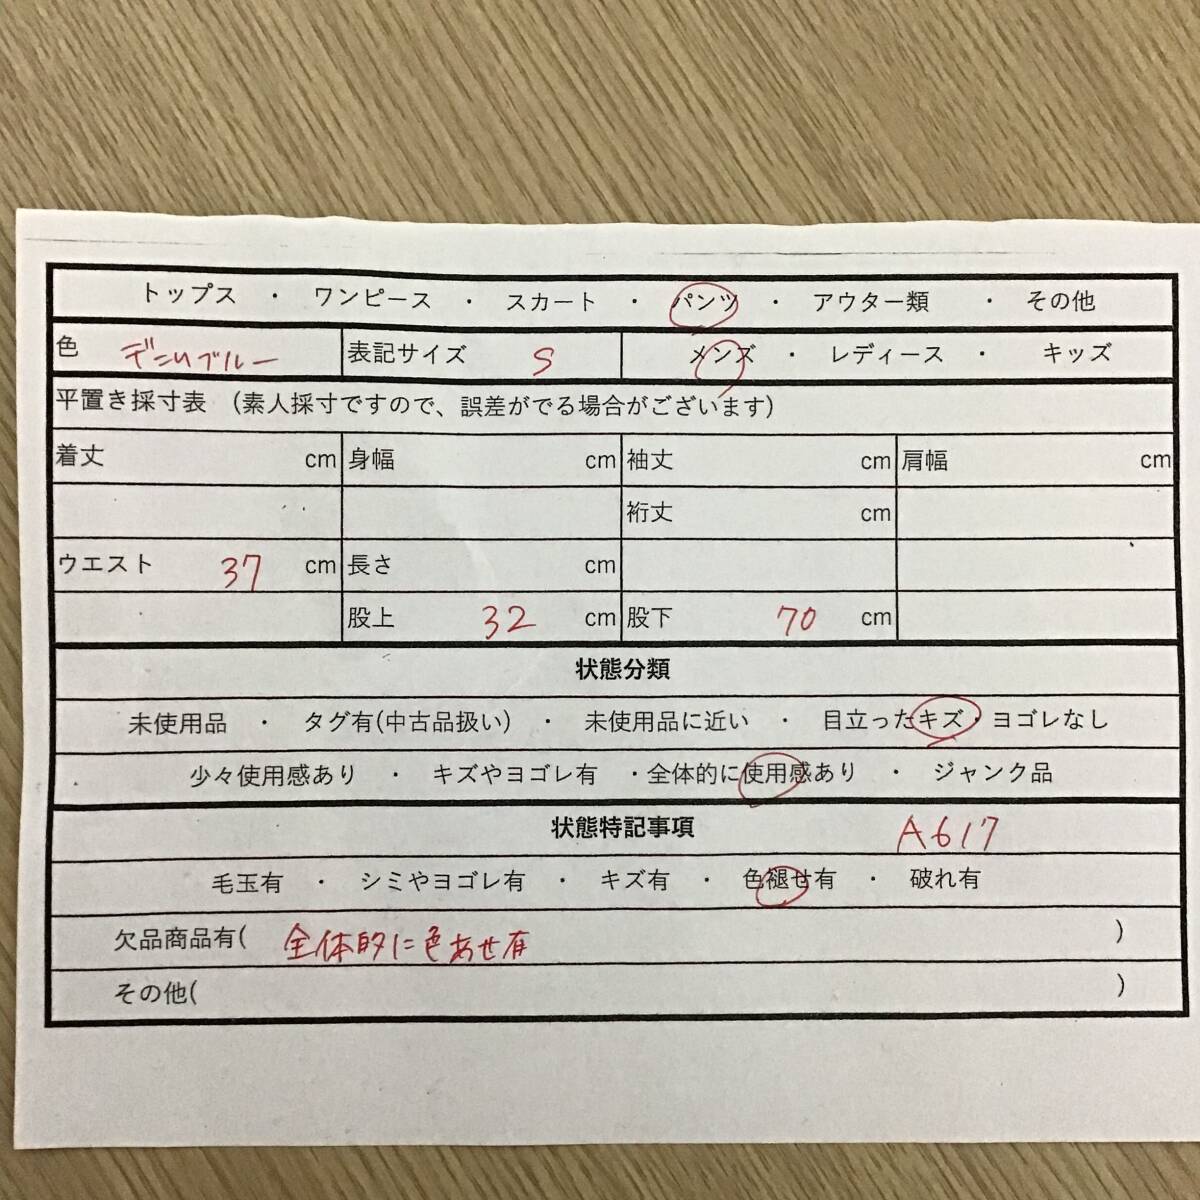 トップス ・ ワンピース ・ スカート ・ パンツ ・ アウター類 ・ その他
色 デニムブルー 表記サイズ S メンズ ・ レディース ・ キッズ
平置き採寸表 (素人採寸ですので、誤差がでる場合がございます)
着丈 cm 身幅 cm 袖丈 cm 肩幅 cm
裄丈 cm
ウエスト 37 cm 長さ cm
股上 32 cm 股下 70 cm
状態分類
未使用品 ・ タグ有(中古品扱い) ・ 未使用品に近い ・ 目立ったキズ・ヨゴレなし
少々使用感あり ・ キズやヨゴレ有 ・全体的に使用感あり ・ ジャンク品
状態特記事項 A617
毛玉有 ・ シミやヨゴレ有 ・ キズ有 ・ 色褪せ有 ・ 破れ有
欠品商品有( 全体的に色あせ有 )
その他( )